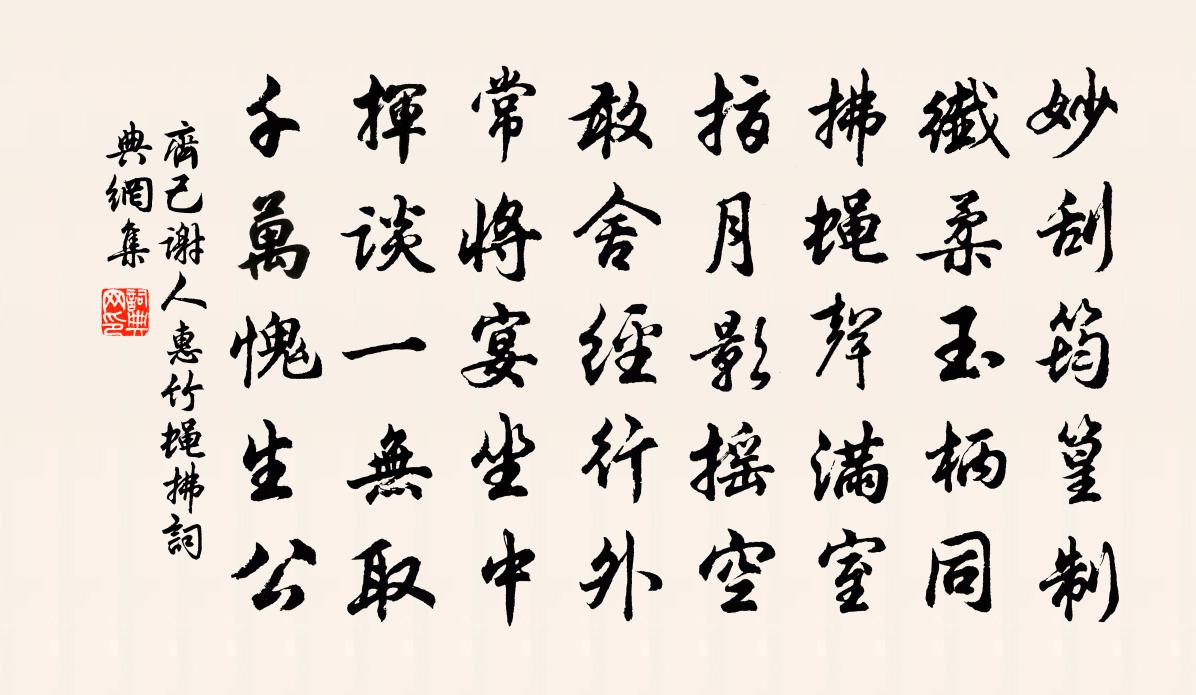 妙刮筠篁制
纖柔玉柄同
拂蝇聲滿室
指月影摇空
敢舍經行外
常將宴坐中
揮談一無取
千萬愧生公
齊己谢人惠竹蝇拂詞
典網集
詞典
网印